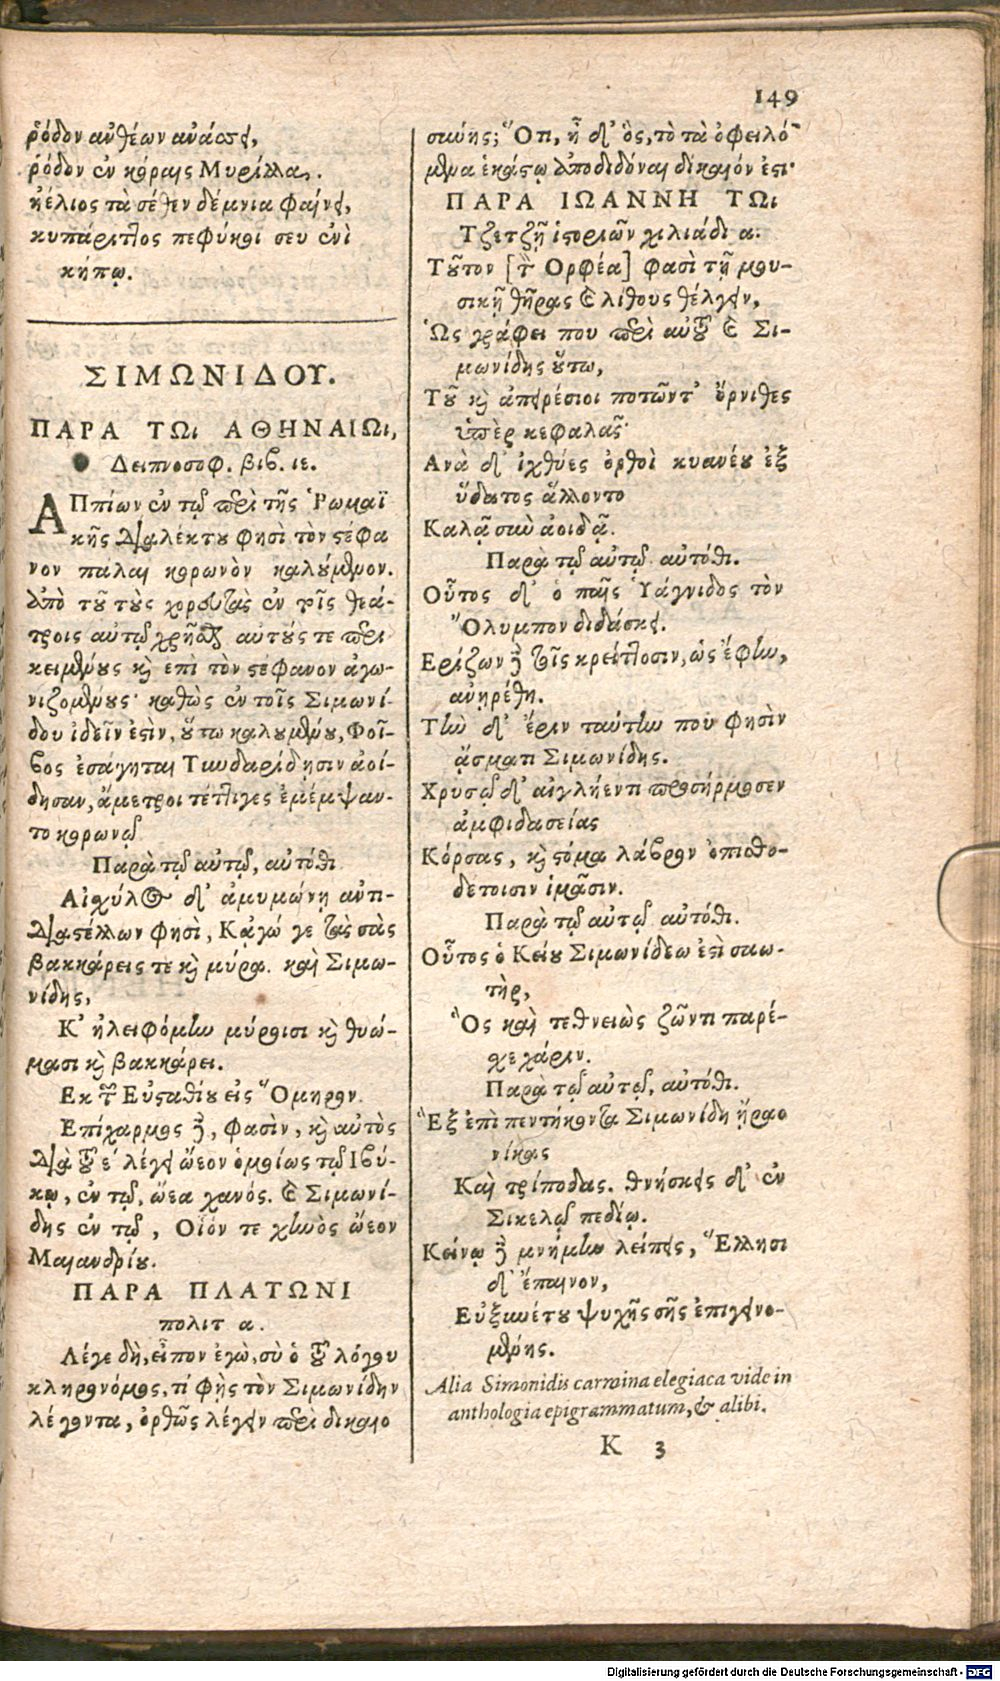 149
ῥόδον ἀνθέων ἀνάσσει,
ῥόδον ἐν κόραις Μυρίλλα.
κἠέλιος τὰ σέθεν δέμνια φαίνει,
κυπάριττος πεφύκοι σευ ἐνὶ
κήπῳ.
ΣΙΜΩΝΙΔΟΥ.
ΠΑΡΑ ΤΩι ΑΘΗΝΑΙΩι,
Δειπνοσοφ. βιβ. ιε.
ΑΠπίων ἐν τῷ περὶ τῆς Ῥωμαϊ
κῆς διαλέκτου φησὶ τὸν στέφα
νον πάλαι κορωνὸν καλούμενον.
ἀπὸ τοῦ τοὺς χορευτὰς ἐν τοῖς θεά-
τροις αὐτῷ χρῆσθαι αὐτούς τε περι
κειμένους καὶ ἐπὶ τὸν στέφανον ἀγω-
νιζομένους· καθὼς ἐν τοῖς Σιμωνί-
δου ἰδεῖν ἐστὶν, οὕτω καλουμένου, Φοῖ-
βος ἐσάγηται Τυνδαρίδησιν ἀοί-
δησαν, ἄμετροι τέττιγες ἐμέμψαν-
το κορωνῷ
Παρὰ τῷ αὐτῷ, αὐτόθι
Αἰσχύλος δ' ἀμυμώνῃ ἀντι-
διαστέλλων φησὶ, Κᾀγώ γε τὰς σὰς
βακκάρεις τε καὶ μύρα. καὶ Σιμω-
νίδης,
Κ' ἠλειφόμην μύροισι καὶ θυώ-
μασι καὶ βακκάρει.
Εκ τῶν Εὐσταθίου εἰς Ὅμηρον.
Επίχαρμος δὲ, φασὶν, καὶ αὐτὸς
διὰ τοῦ ε' λέγει ὤεον ὁμοίως τῷ Ιβύ-
κῳ, ἐν τῷ, ὤεα χανός. καὶ Σιμωνί-
δης ἐν τῷ, Οἷόν τε χηνὸς ὤεον
Μαιανδρίου.
ΠΑΡΑ ΠΛΑΤΩΝΙ
πολιτ α.
Λέγε δὴ, εἶπον ἐγὼ, σὺ ὁ τοῦ λόγου
κληρονόμος, τί φῂς τὸν Σιμωνίδην
λέγοντα, ὀρθῶς λέγειν περὶ δικαιο
σύνης; Ὅτι, ἦ δ' ὃς, τὸ τὰ ὀφειλό-
μενα ἑκάστῳ ἀποδιδόναι δίκαιόν ἐστι·
ΠΑΡΑ ΙΩΑΝΝΗ ΤΩι
Τζετζῇ ἱστοριῶν χιλιάδι α.
Τοῦτον [τὸν Ορφέα] φασὶ τῇ μου-
σικῇ θῆρας καὶ λίθους θέλγειν,
Ὡς γράφει που περὶ αὐτοῦ καὶ Σι-
μωνίδης οὕτω,
Τοῦ καὶ ἀπειρέσιοι ποτῶντ' ὄρνιθες
ὑπὲρ κεφαλᾶς·
Ανὰ δ' ἰχθύες ὀρθοὶ κυανέου ἐξ
ὕδατος ἅλλοντο
Καλᾷ σὺν ἀοιδᾷ.
Παρὰ τῷ αὐτῷ αὐτόθι.
Οὗτος δ' ὁ παῖς Ὑάγνιδος τὸν
Ὄλυμπον διδάσκει.
Ερίζων δὲ τοῖς κρείττοσιν, ὡς ἔφην,
ἀνῃρέθη.
Τὴν δ' ἔριν ταύτην ποὺ φησὶν
ᾄσματι Σιμωνίδης.
Χρυσῷ δ' αἰγλήεντι προσήρμοσεν
ἀμφιδασείας
Κόρσας, καὶ στόμα λάβρον ὀπισθο-
δέτοισιν ἱμᾶσιν.
Παρὰ τῷ αὐτῷ αὐτόθι.
Οὗτος ὁ Κείου Σιμωνίδεω ἐστὶ σαω-
τὴρ,
Ὃς καὶ τεθνειὼς ζῶντι παρέ-
χε χάριν.
Παρὰ τῷ αὐτῷ, αὐτόθι.
Ἓξ ἐπὶ πεντήκοντα Σιμωνίδη ἤραο
νίκας
Καὶ τρίποδας. θνήσκεις δ' ἐν
Σικελῷ πεδίῳ.
Κείνῳ δὲ μνήμην λείπεις, Ἕλλησι
δ' ἔπαινον,
Εὐξυνέτου ψυχῆς σῆς ἐπιγεινο-
μένης.
Alia Simonidis carmina elegiaca vide in
anthologia epigrammatum, & alibi.
K 3
Digitalisierung gefördert durch die Deutsche Forschungsgemeinschaft - DFG